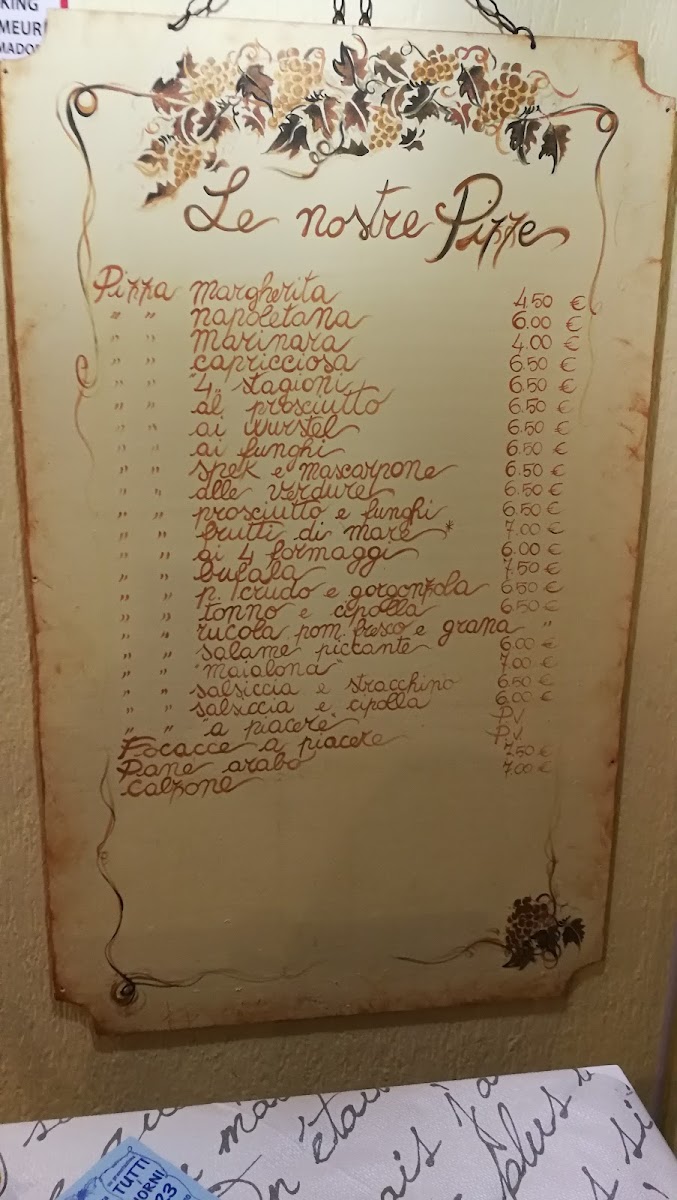 KING
MEUR
MADO
Le nostre Pizze
Pizza margherita 4.50 €
" " napoletana 6.00 €
" " marinara 4.00 €
" " capricciosa 6.50 €
" " "4" stagioni 6.50 €
" " al prosciutto 6.50 €
" " ai wurstel 6.50 €
" " ai funghi 6.50 €
" " spek e mascarpone 6.50 €
" " alle verdure 6.50 €
" " prosciutto e funghi 6.50 €
" " frutti di mare * 7.00 €
" " ai 4 formaggi 6.00 €
" " bufala 7.50 €
" " p. crudo e gorgonzola 6.50 €
" " tonno e cipolla 6.50 €
" " rucola pom. fresco e grana "
" " salame piccante 6.00 €
" " "maialona" 7.00 €
" " salsiccia e stracchino 6.50 €
" " salsiccia e cipolla 6.00 €
" " "a piacere" P.V
Focacce a piacere P.V.
Pane arabo 7.50 €
calzone 7.00 €
TUTTI
23